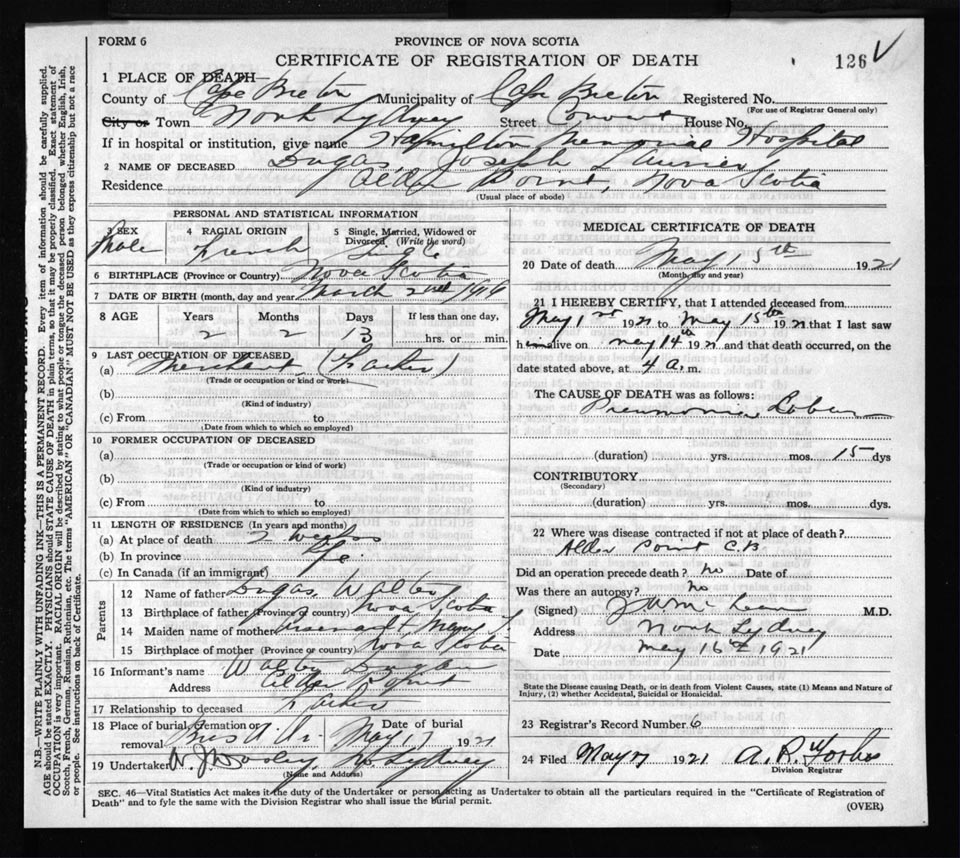 FORM 6
PROVINCE OF NOVA SCOTIA
CERTIFICATE OF REGISTRATION OF DEATH
126
1 PLACE OF DEATH—
County of Cape Breton Municipality of Cape Breton Registered No.
(For use of Registrar General only)
City or Town North Sydney Street Convent House No.
If in hospital or institution, give name Hamilton Memorial Hospital
2 NAME OF DECEASED Dugas, Joseph Laurier
Residence Alder Point, Nova Scotia
(Usual place of abode)
PERSONAL AND STATISTICAL INFORMATION
3 SEX 4 RACIAL ORIGIN 5 Single, Married, Widowed or Divorced (Write the word)
Male French Single
6 BIRTHPLACE (Province or Country) Nova Scotia
7 DATE OF BIRTH (month, day and year) March 2nd
8 AGE Years Months Days If less than one day,
2 2 13 hrs. or min.
9 LAST OCCUPATION OF DECEASED
(a) Merchant (Father)
(Trade or occupation or kind or work)
(b)
(Kind of industry)
(c) From to
(Date from which to which so employed)
10 FORMER OCCUPATION OF DECEASED
(a)
(Trade or occupation or kind of work)
(b)
(Kind of industry)
(c) From to
(Date from which to which so employed)
11 LENGTH OF RESIDENCE (In years and months)
(a) At place of death 2 weeks
(b) In province life
(c) In Canada (if an immigrant)
Parents
12 Name of father Dugas, Walter
13 Birthplace of father (Province or country) Nova Scotia
14 Maiden name of mother Mary
15 Birthplace of mother (Province or country) Nova Scotia
16 Informant's name
Address Alder Point
17 Relationship to deceased Father
18 Place of burial, cremation or removal Date of burial May 17 1921
19 Undertaker N. Sydney
(Name and Address)
MEDICAL CERTIFICATE OF DEATH
20 Date of death May 15th 1921
(Month, day and year)
21 I HEREBY CERTIFY, that I attended deceased from
May 1st 1921 to May 15th 1921 that I last saw
him alive on May 14th 1921 and that death occurred, on the
date stated above, at 4 a. m.
The CAUSE OF DEATH was as follows:
Pneumonia, Lobar
(duration) yrs. mos. 15 dys
CONTRIBUTORY
(Secondary)
(duration) yrs. mos. dys.
22 Where was disease contracted if not at place of death?
Alder Point C.B
Did an operation precede death? No Date of
Was there an autopsy? No
(Signed) McLean M.D.
Address North Sydney
Date May 16th 1921
State the Disease causing Death, or in death from Violent Causes, state (1) Means and Nature of
Injury, (2) whether Accidental, Suicidal or Homicidal.
23 Registrar's Record Number 6
24 Filed May 17 1921 A. R. Forbes
Division Registrar
SEC. 46—Vital Statistics Act makes it the duty of the Undertaker or person acting as Undertaker to obtain all the particulars required in the "Certificate of Registration of
Death" and to fyle the same with the Division Registrar who shall issue the burial permit.
(OVER)
N.B.—WRITE PLAINLY WITH UNFADING INK—THIS IS A PERMANENT RECORD. Every item of information should be carefully supplied.
AGE should be stated EXACTLY. PHYSICIANS should STATE CAUSE OF DEATH in plain terms, so that it may be properly classified. Exact statement of
OCCUPATION is very important. RACIAL ORIGIN will be described by stating to what people or tongue the deceased person belonged, whether English, Irish,
Scotch, French, German, Russian, Ruthenian, etc. The terms "AMERICAN" OR "CANADIAN" MUST NOT BE USED as they express citizenship but not a race
or people. See instructions on back of Certificate.